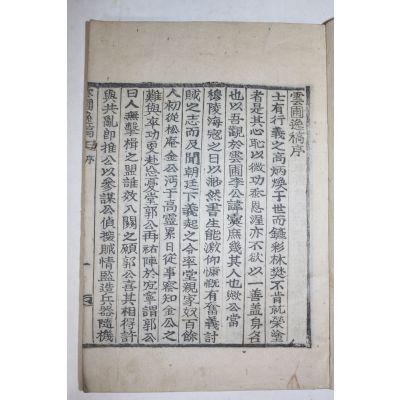 雲圃逸稿序
士有行義之高炳煥于世而鏟彩林樊不肯就榮塗
者是其心恥以微功黍恩涅亦不欲以一善盖身名
也以吾觀於雲圃李公諱曇庶幾其人也歟公當
穆陵海寇之日以渺然書生能激仰慷慨有奮義討
賊之志而及聞朝廷下義起之令率堂親家奴百餘
人初從松庵金公沔于高靈累日從事察知金公之
難與率功更赴忘憂堂郭公再祐陣於宛寧謂郭公
曰人無擊楫之盟誰效八關之願郭公喜其相得許
與共亂卽推公以參謀公偵撥賊情監造兵器隨機
雲圃逸稿 序 一